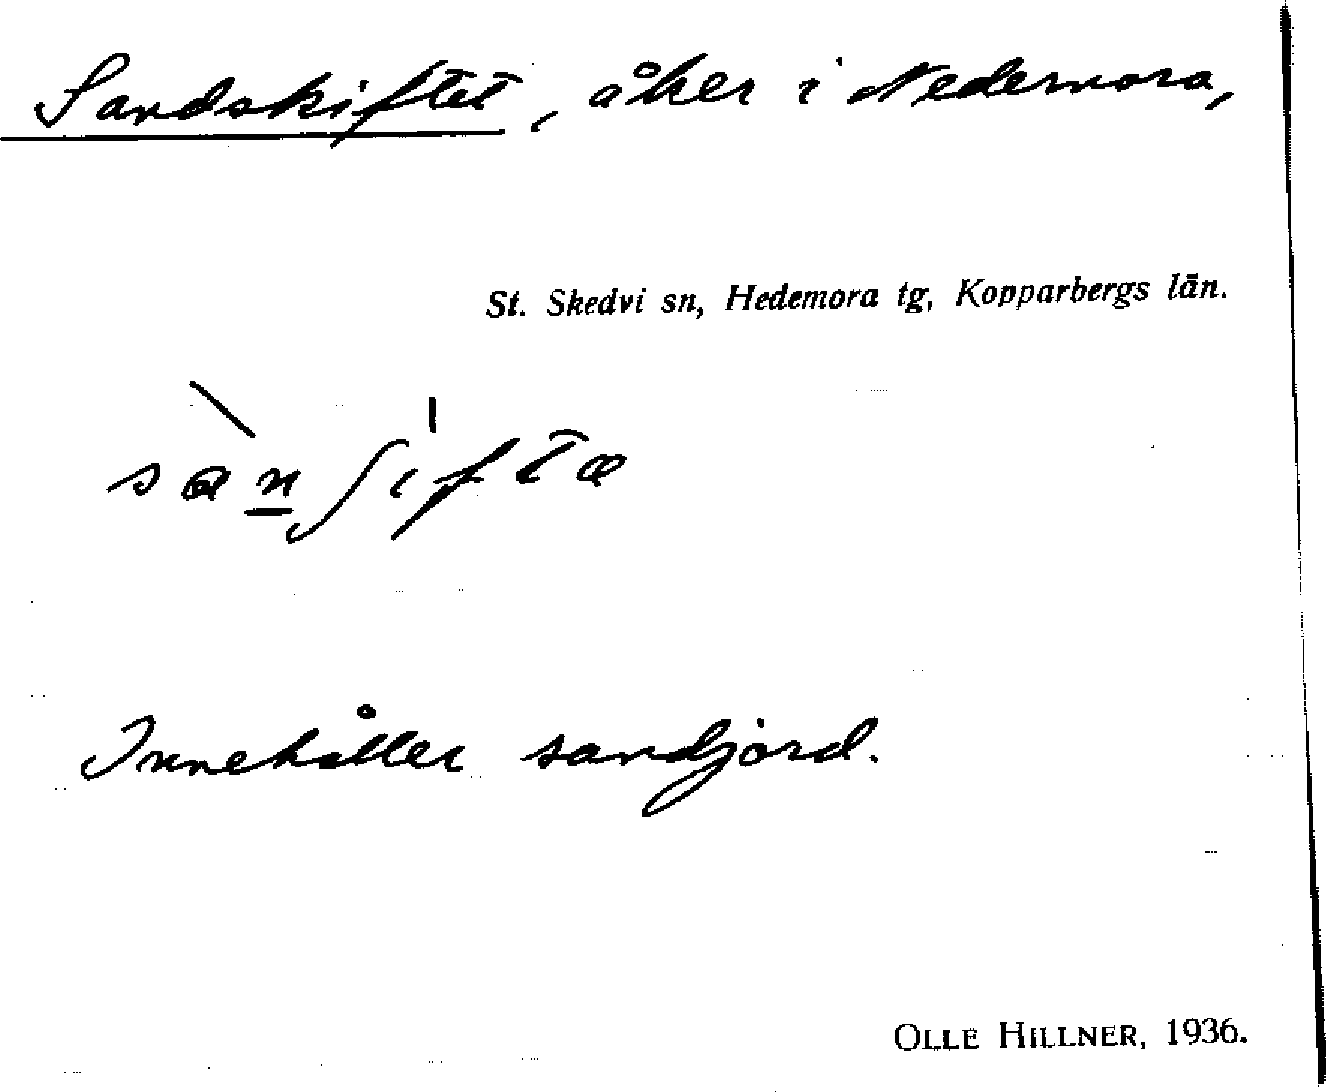 Sandskiftet, åker i Nedernora,
St. Skedvi sn, Hedemora tg, Kopparbergs län.
sànʃiftæ
Innehåller sandjord.
OLLE HILLNER, 1936.